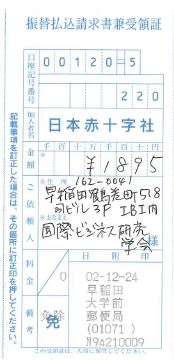 振替払込請求書兼受領証
口座記号番号
00120-5
220
加入者名
日本赤十字社
金額
千百十万千百十円
¥1895
ご依頼人
※住所
162-0041
早稲田鶴巻町518
司ビル3F IBI内
国際ビジネス研究
学会
様
料金
0
備考
免除
免
02-12-24
早稲田
大学前
郵便局
(01071)
N94210009
記載事項を訂正した場合は、その箇所に訂正印を押してください。
この受領証は、大切に保管してください。